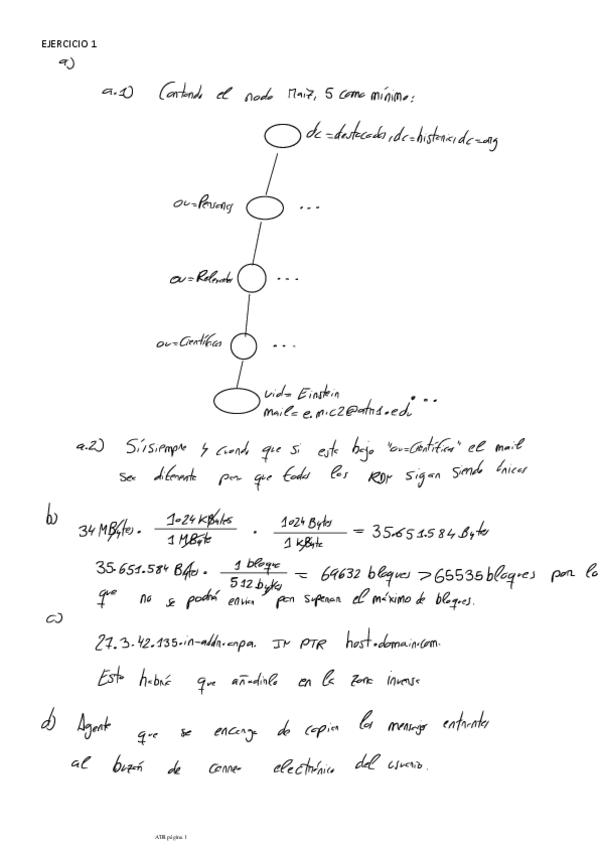 EJERCICIO 1
a)
a.1) Contando el nodo Raíz, 5 como mínimo:
dc=destacados,dc=historia,dc=org
ou=Personas ...
ou=Relevantes ...
ou=Científicos ...
uid= Einstein ...
mail= e.mc2@atri1.edu
a.2) Sí, siempre y cuando que si esta bajo "ou=Científicos" el mail
sea diferente para que todos los RDN sigan siendo únicos
b)
34 MBytes · 1024 KBytes / 1 MByte · 1024 Bytes / 1 KByte = 35.651.584 Bytes
35.651.584 Bytes · 1 bloque / 512 bytes = 69632 bloques > 65535 bloques por lo
que no se podrá enviar por superar el máximo de bloques.
c)
27.3.42.135.in-addr.arpa. IN PTR host.domain.com.
Esto habrá que añadirlo en la zona inversa
d) Agente que se encarga de copiar los mensajes entrantes
al buzón de correo electrónico del usuario.
ATRI página 1